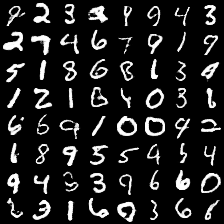 2 3 4 9 4 3
2 7 4 6 7 9 1 9
5 1 8 6 8 1 3 4
1 2 1 8 6 0 3 1
6 6 9 1 0 0 4 2
1 8 9 5 5 9 5 4
9 4 3 3 9 6 6 0
3 1 6 0 3 6